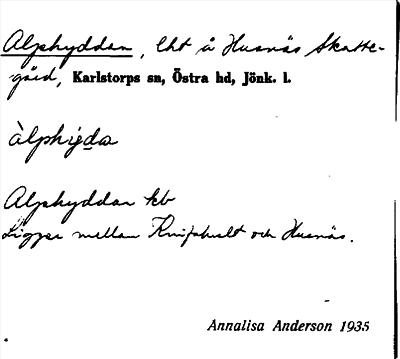 Alphyddan, lht å Husnäs Skatte-
gård, Karlstorps sn, Östra hd, Jönk. l.
àlphyda
Alphyddan kb
Ligger mellan Knipshult och Husnäs.
Annalisa Anderson 1935